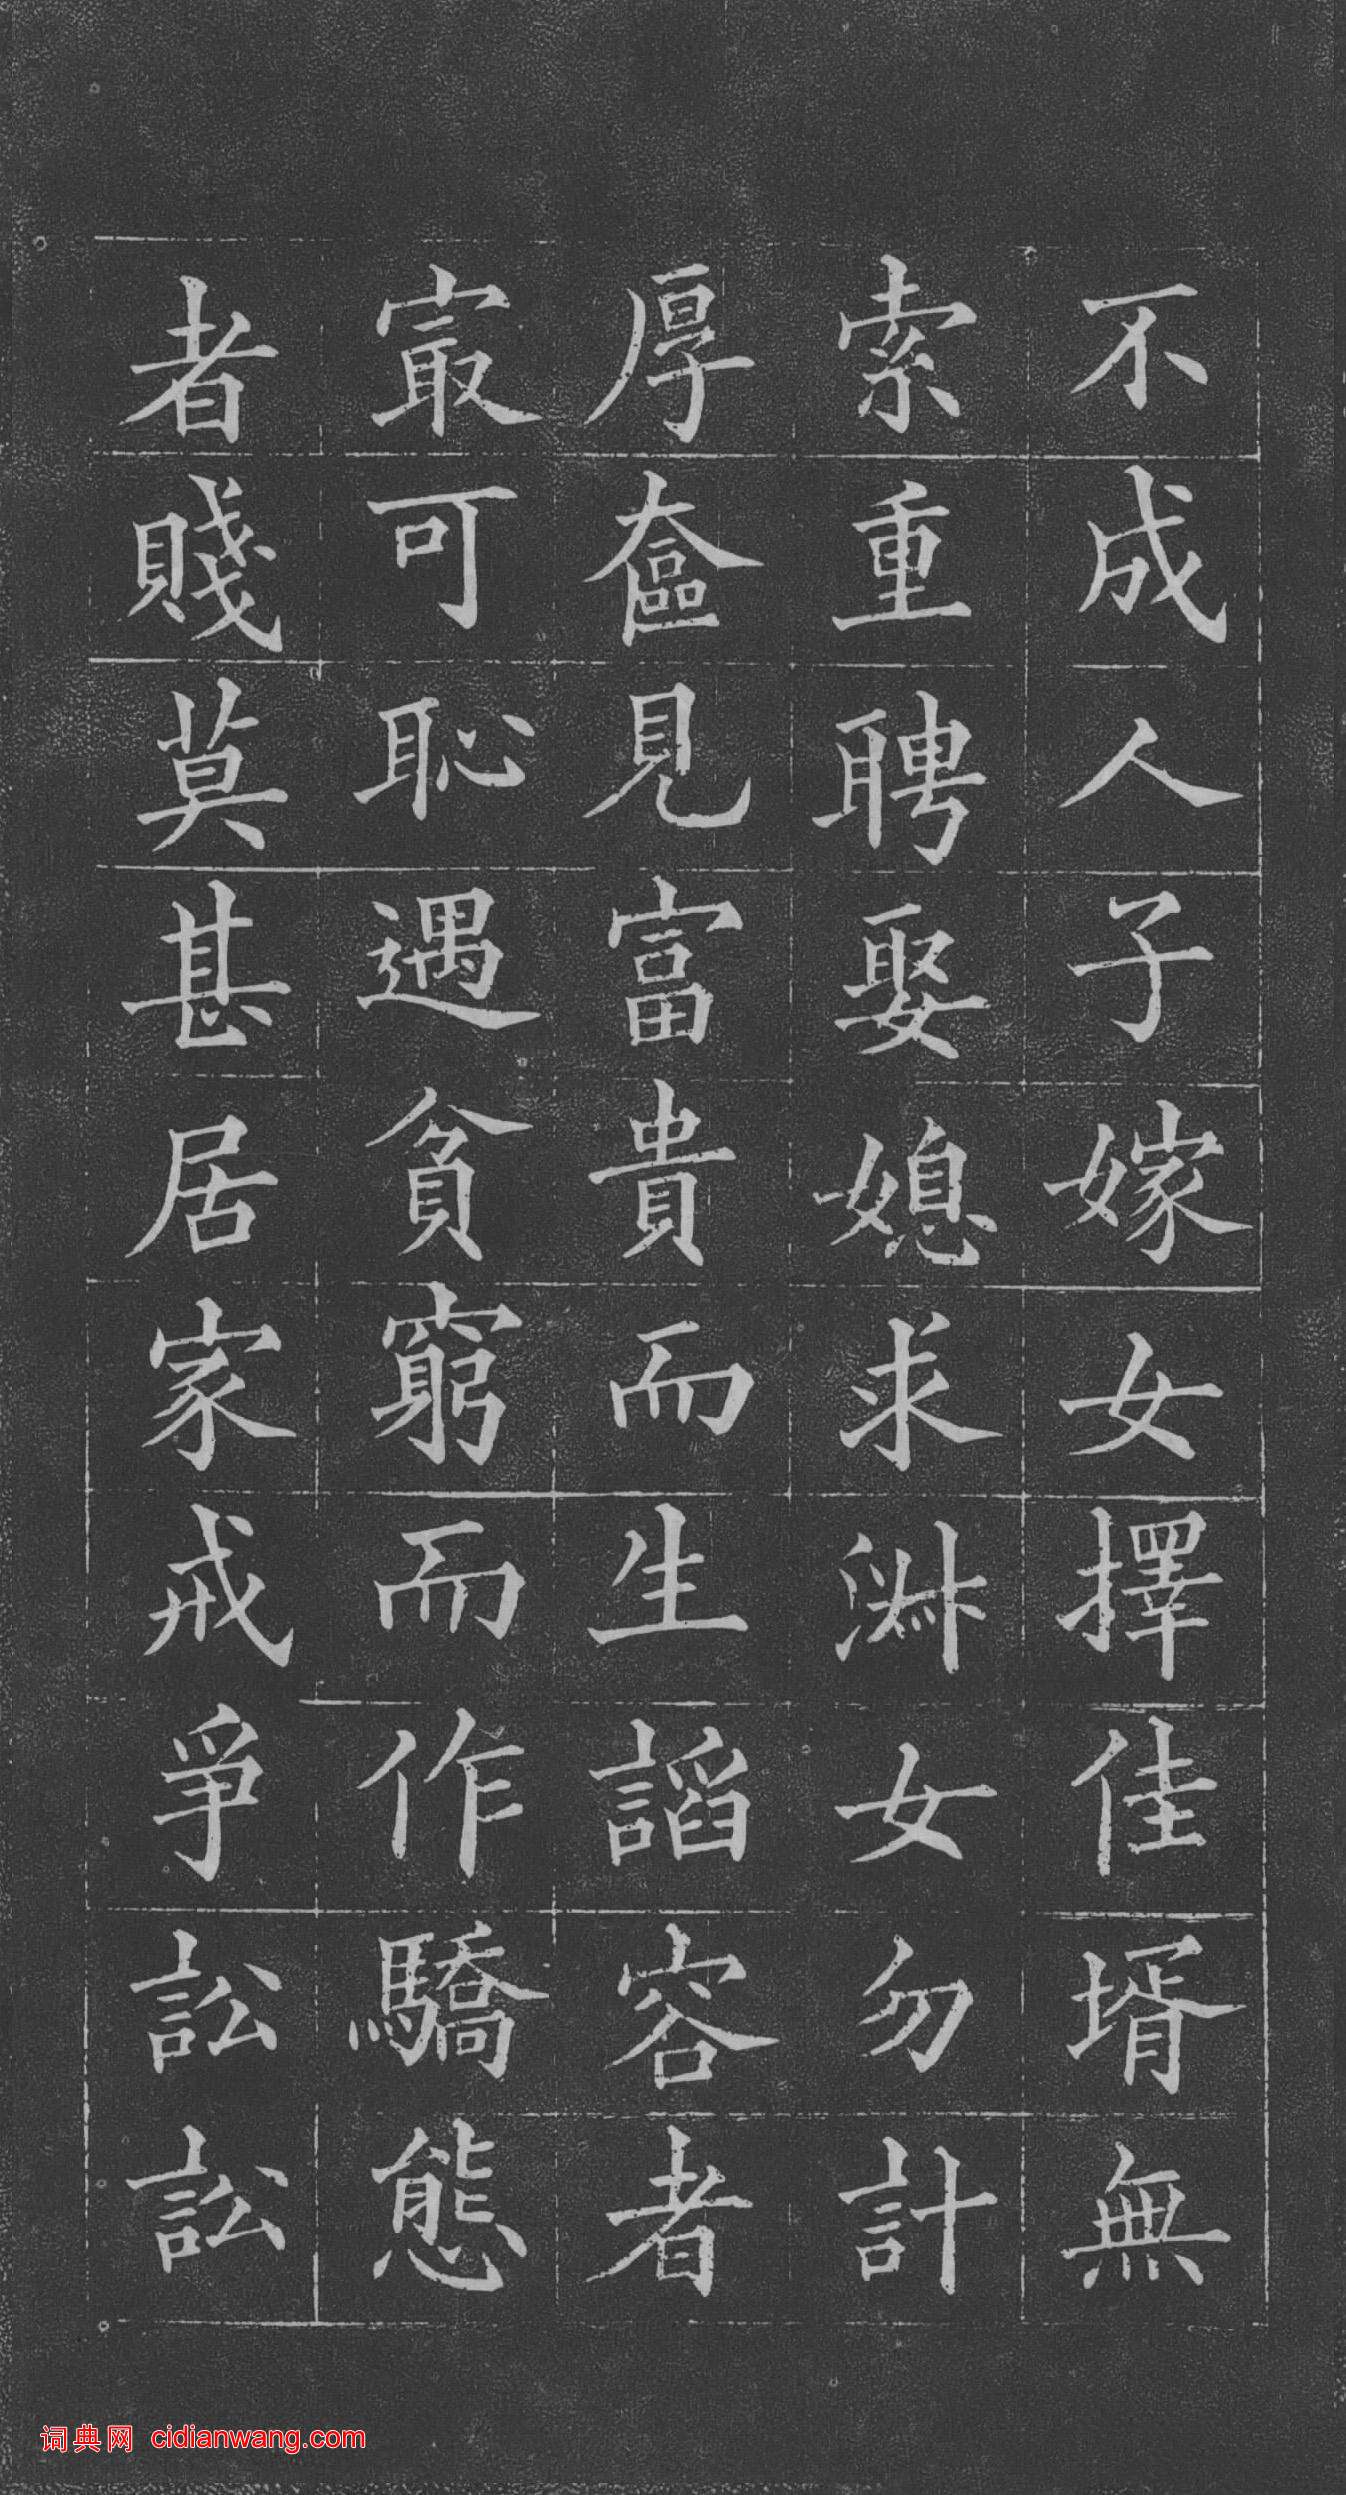 不成人子嫁女擇佳壻無
索重聘娶媳求淑女勿計
厚奩見富貴而生謟容者
㝡可恥遇貧窮而作驕態
者賤莫甚居家戒爭訟訟
词典网 cidianwang.com